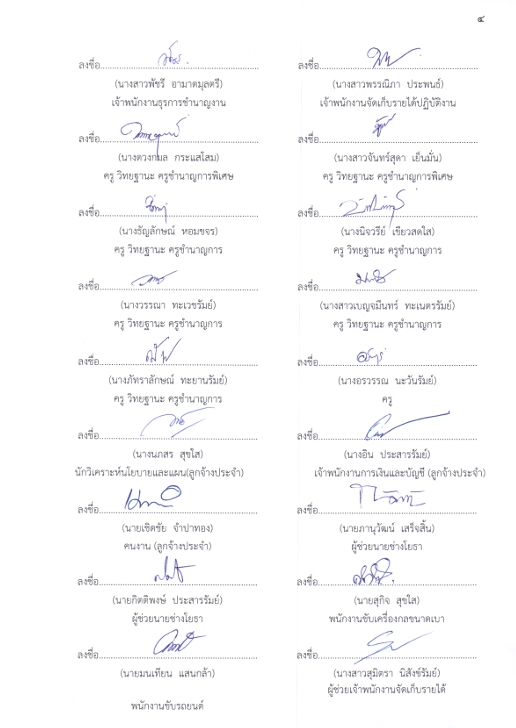 ๔
ลงชื่อ
(นางสาวพัชรี อามาตมุลตรี)
เจ้าพนักงานธุรการชำนาญงาน
ลงชื่อ
(นางสาวพรรณิภา ประพนธ์)
เจ้าพนักงานจัดเก็บรายได้ปฏิบัติงาน
ลงชื่อ
(นางดวงกมล กระแสโสม)
ครู วิทยฐานะ ครูชำนาญการพิเศษ
ลงชื่อ
(นางสาวจันทร์สุดา เย็นมั่น)
ครู วิทยฐานะ ครูชำนาญการพิเศษ
ลงชื่อ
(นางธัญลักษณ์ หอมขจร)
ครู วิทยฐานะ ครูชำนาญการ
ลงชื่อ
(นางนิจวรีย์ เขียวสดใส)
ครู วิทยฐานะ ครูชำนาญการ
ลงชื่อ
(นางวรรณา ทะเวชรัมย์)
ครู วิทยฐานะ ครูชำนาญการ
ลงชื่อ
(นางสาวเบญจมีนทร์ ทะเนตรรัมย์)
ครู วิทยฐานะ ครูชำนาญการ
ลงชื่อ
(นางภัทราลักษณ์ ทะยานรัมย์)
ครู วิทยฐานะ ครูชำนาญการ
ลงชื่อ
(นางอรวรรณ นะวันรัมย์)
ครู
ลงชื่อ
(นางนภสร สุขใส)
นักวิเคราะห์นโยบายและแผน(ลูกจ้างประจำ)
ลงชื่อ
(นางอิน ประสารรัมย์)
เจ้าพนักงานการเงินและบัญชี (ลูกจ้างประจำ)
ลงชื่อ
(นายเชิดชัย จำปาทอง)
คนงาน (ลูกจ้างประจำ)
ลงชื่อ
(นายภานุวัฒน์ เสร็จสิ้น)
ผู้ช่วยนายช่างโยธา
ลงชื่อ
(นายกิตติพงษ์ ประสารรัมย์)
ผู้ช่วยนายช่างโยธา
ลงชื่อ
(นายสุกิจ สุขใส)
พนักงานขับเครื่องกลขนาดเบา
ลงชื่อ
(นายมนเทียน แสนกล้า)
พนักงานขับรถยนต์
ลงชื่อ
(นางสาวสุมิตรา นิสังข์รัมย์)
ผู้ช่วยเจ้าพนักงานจัดเก็บรายได้